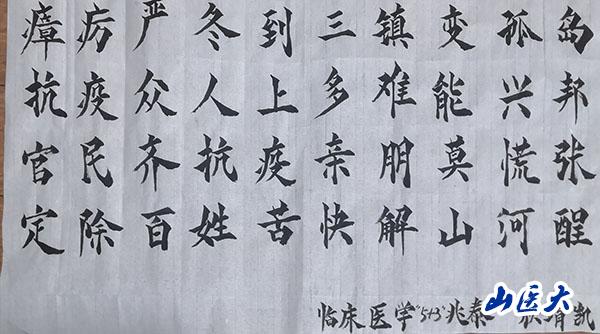 瘴疠严冬到三镇变孤岛
抗疫众人上多难能兴邦
官民齐抗疫亲朋莫慌张
定除百姓苦快解山河醒
临床医学"5+3"兆泰 凯
山医大